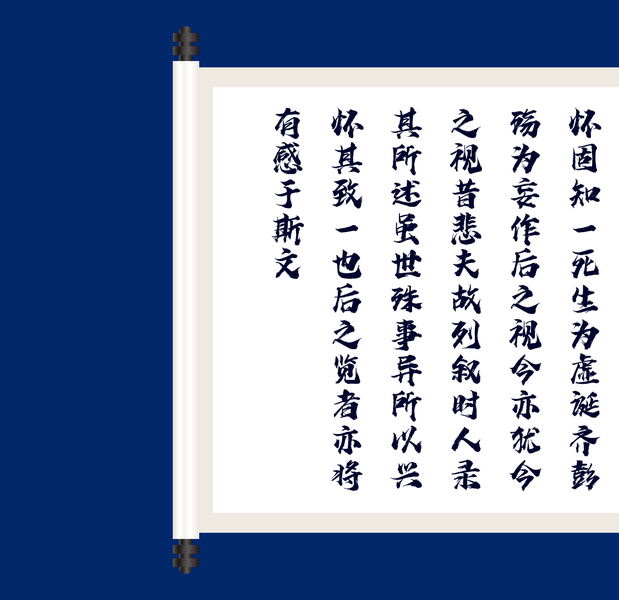 怀固知一死生为虚诞齐彭
殇为妄作后之视今亦犹今
之视昔悲夫故列叙时人录
其所述虽世殊事异所以兴
怀其致一也后之览者亦将
有感于斯文